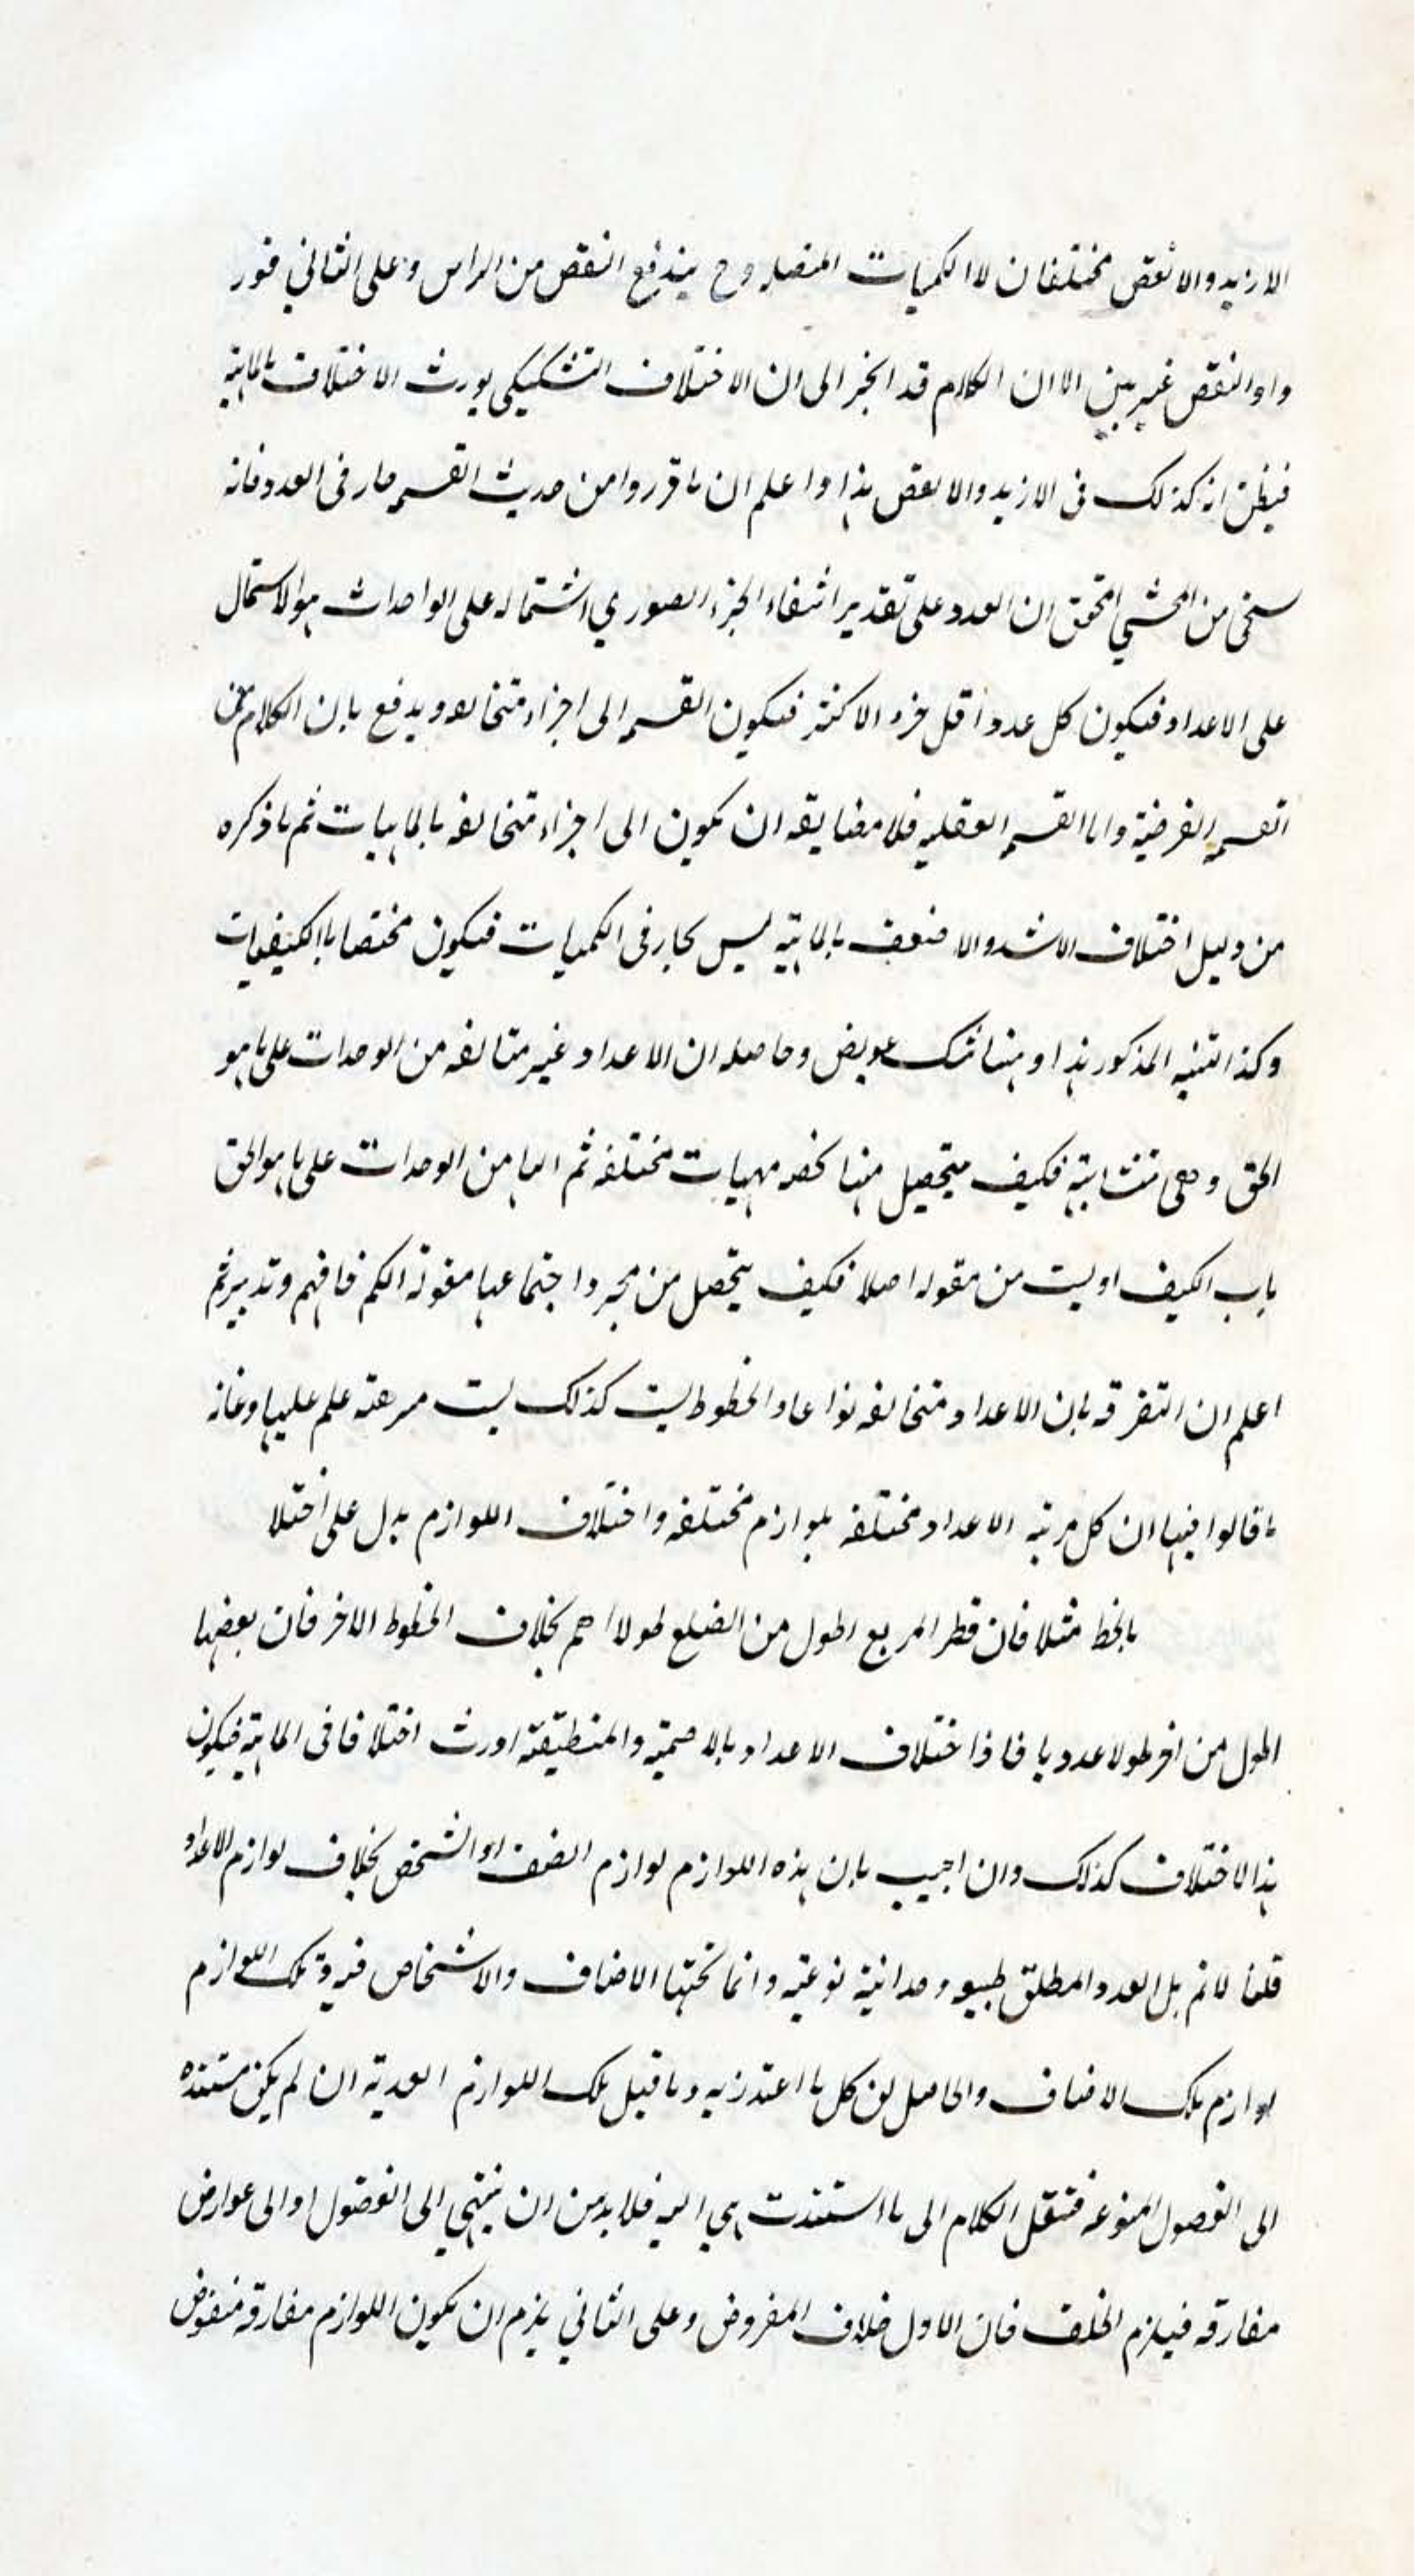 الازيد والانقص مختلفان لا الكميات المتصله وح يندفع النقض من الراس وعلى الثاني فنور
واو النقض غير مبين الا ان الكلام قد انجر الى ان الاختلاف التشكيكى يورث الاختلاف بالماهية
فيظن انه كذلك فى الازيد والانقص هذا واعلم ان ما قرروا من حديث القسمه جار فى العدد فانه
سيجئ من المحشي المحقق ان العدد على تقدير انتفاء الجزء الصوري اشتماله على الواحدات هو الاشتمال
على الاعداد فيكون كل عدد اقل جزء الاكثر فيكون القسمه الى اجزاء متخالفه ويدفع بان الكلام فى
القسمه الفرضية واما القسمه العقليه فلا مضايقه ان يكون الى اجزاء متخالفه بالماهيات ثم ما ذكره
من دليل اختلاف الاشد والاضعف بالماهية ليس بجار فى الكميات فيكون مختصا بالكيفيات
وكذا التنبيه المذكور هذا وهنا شك عويص وحاصله ان الاعداد غير متالفه من الوحدات على ما هو
الحق وهى متشابهة فكيف يتحصل منها مهيات مختلفه ثم انها من الوحدات على ما هو الحق
باب الكيف او ليست من مقوله اصلا فكيف يتحصل من مجرد اجتماعها مقولة الكم فافهم وتدبر ثم
اعلم ان التفرقه بان الاعداد متخالفه نوعا والخطوط ليست كذلك ليست علم عليها وغايه
ما قالوا فيها ان كل مرتبه الاعداد مختلفه بلوازم مختلفه واختلاف اللوازم يدل على اختلا
بالخط مثلا فان قطر المربع اطول من الضلع طولا اصم بخلاف الخطوط الاخر فان بعضها
اطول من اخر طولا عدديا فاذا اختلاف الاعداد بالاصمية والمنطقية اورث اختلافا فى الماهية فيكون
هذا الاختلاف كذلك وان اجيب بان هذه اللوازم لوازم الصنف او الشخص بخلاف لوازم الاعداد
قلنا لانم بل العدد المطلق طبيعه وحدانية نوعية وانما تحتها الاصناف والاشخاص تلك اللوازم
لوازم تلك الاصناف والحاصل ان كل ما اعتذر به وما قيل تلك اللوازم العدديه ان لم يكن مستنده
الى الفصول المنوعه فننقل الكلام الى ما استندت هي اليه فلا بد من ان ينتهي الى الفصول او الى عوارض
مفارقه فيلزم الخلف فان الاول خلاف المفروض وعلى الثاني يلزم ان يكون اللوازم مفارقه منقوض